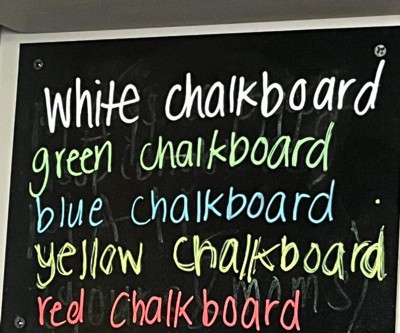 white chalkboard
green chalkboard
blue chalkboard
yellow chalkboard
red chalkboard